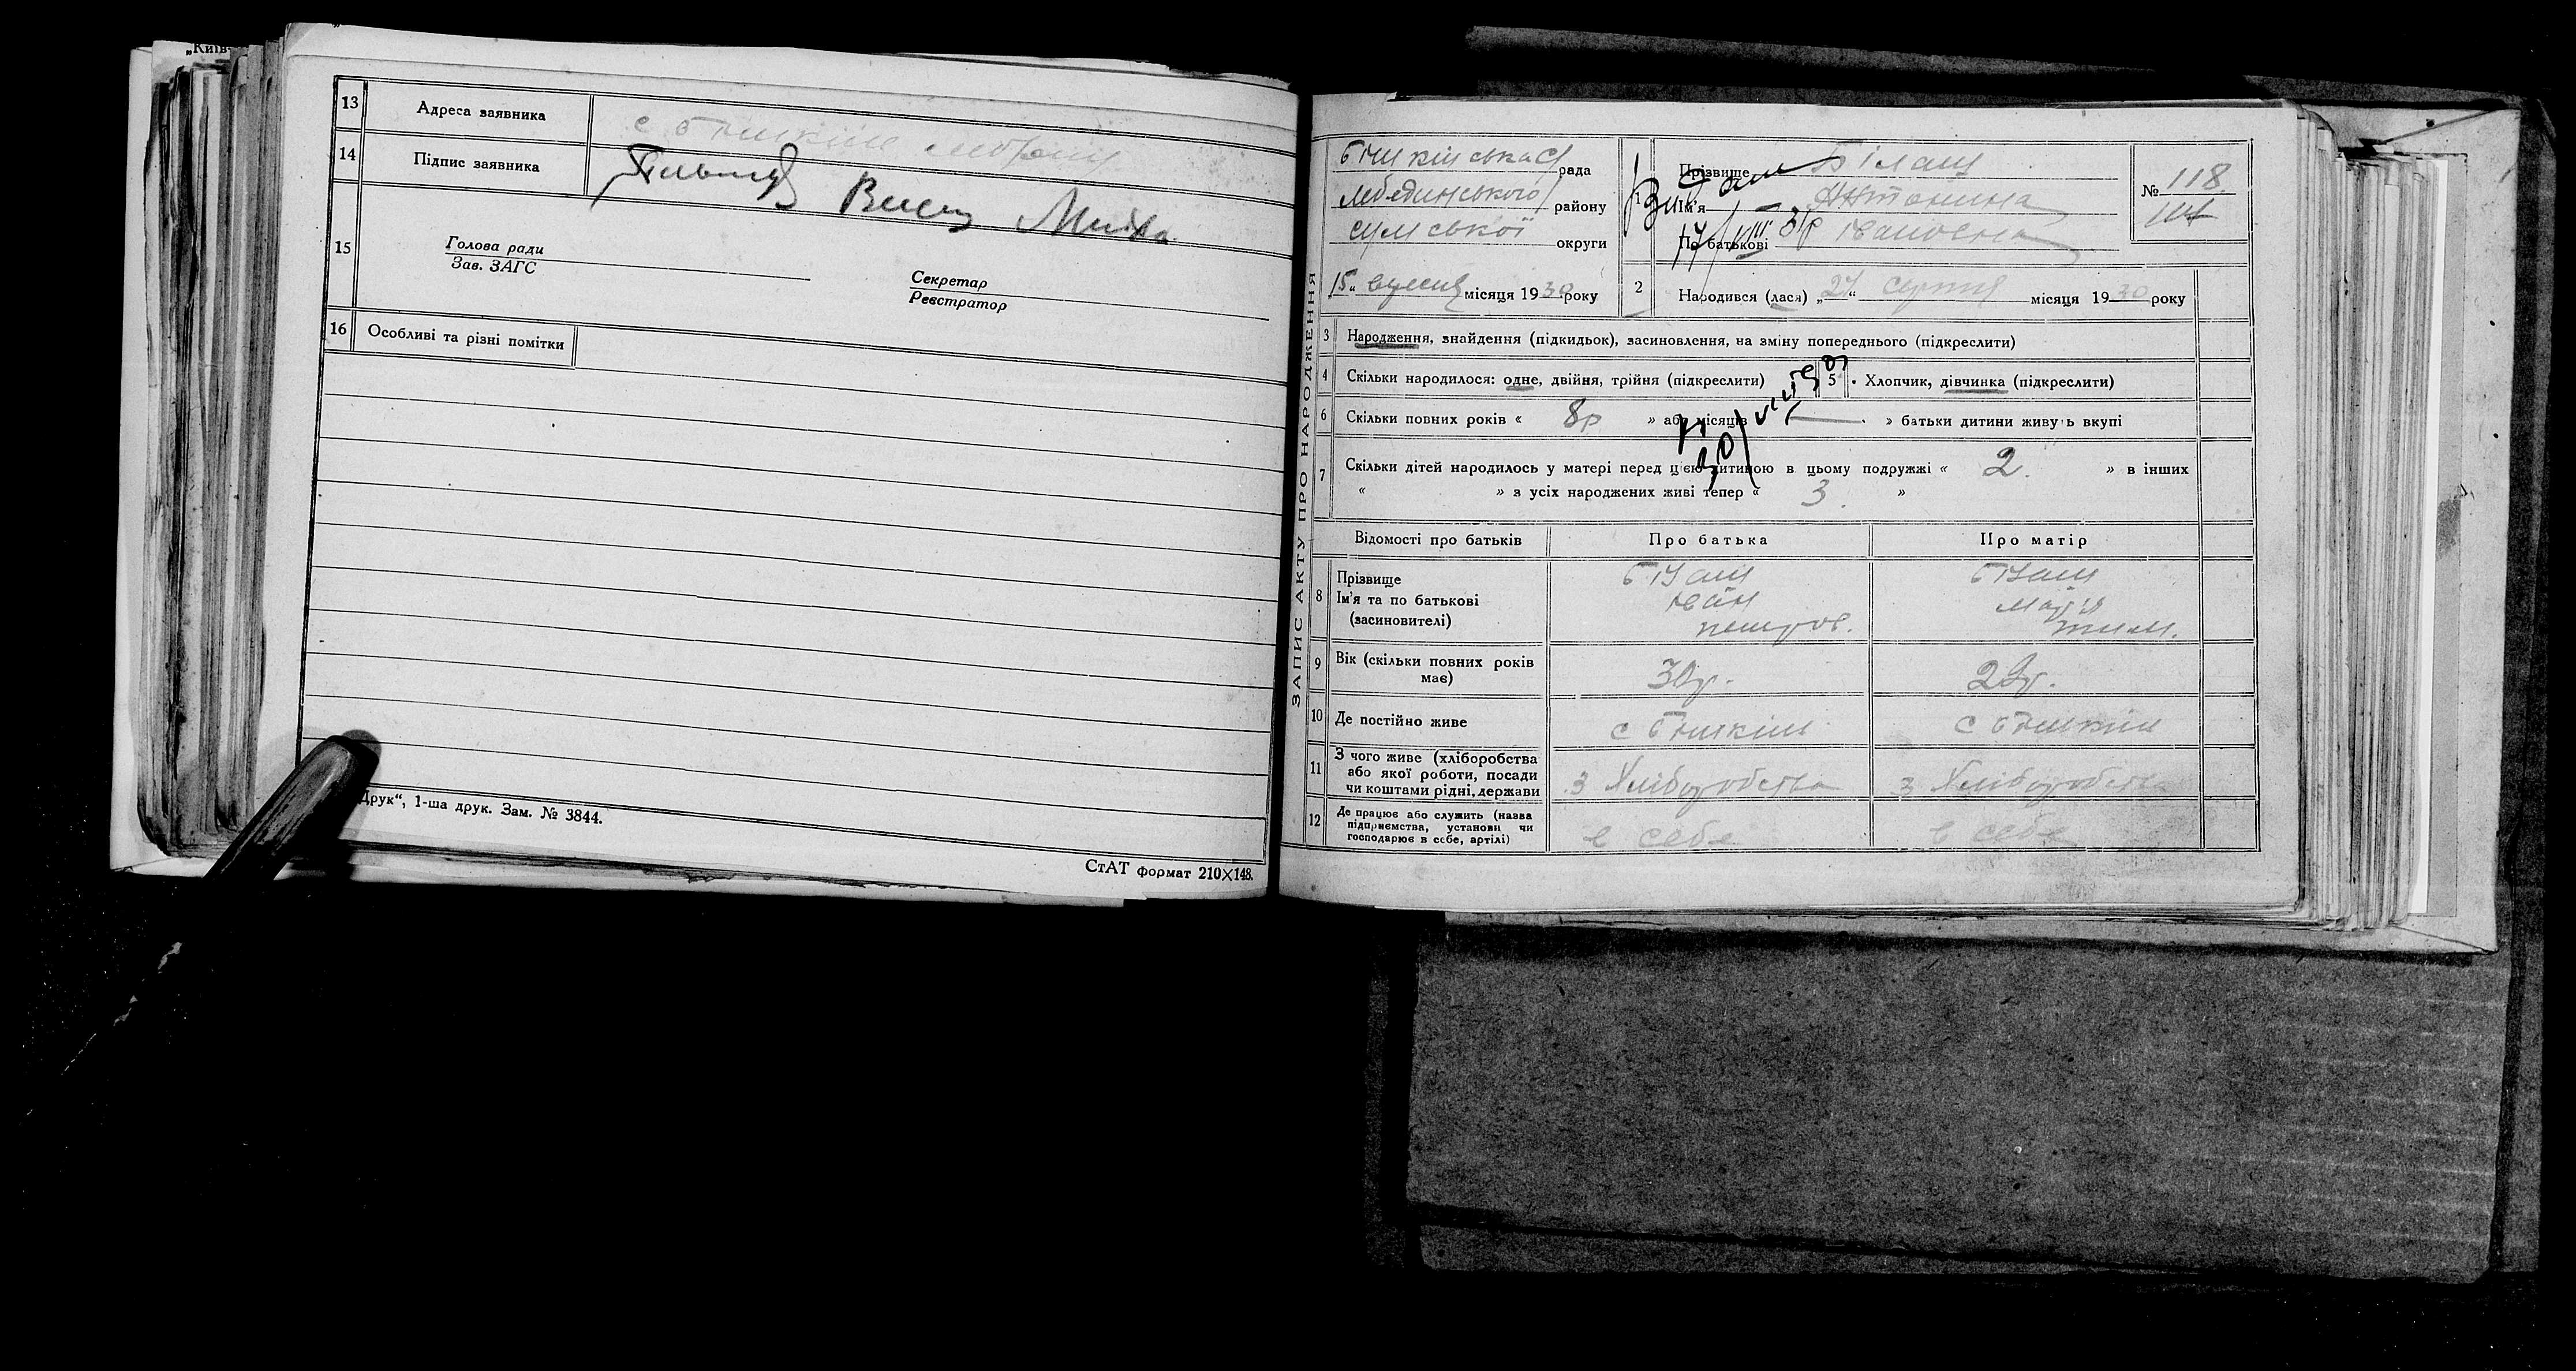 „Київ-
13 Адреса заявника с Бишкінь
14 Підпис заявника
15 Голова ради
Зав. ЗАГС
Секретар
Реєстратор
16 Особливі та різні помітки
Друк“, 1-ша друк. Зам. № 3844.
СтАТ формат 210×148.
ЗАПИС АКТУ ПРО НАРОДЖЕННЯ
Бишкінська рада
Лебединського району
Сумської округи
15 „ вересня місяця 1930 року
1 Прізвище Білаш
Ім'я Антонина
По батькові Івановна
№ 118
2 Народився (лася) „27“ серпня місяця 1930 року
3 Народження, знайдення (підкидьок), засиновлення, на зміну попереднього (підкреслити)
4 Скільки народилося: одне, двійня, трійня (підкреслити) 5 Хлопчик, дівчинка (підкреслити)
6 Скільки повних років « 8р » або місяців — » батьки дитини живуть вкупі
7 Скільки дітей народилось у матері перед цією дитиною в цьому подружжі « 2. » в інших
« » з усіх народжених живі тепер « 3. »
Відомості про батьків Про батька Про матір
8 Прізвище Білаш Білаш
Ім'я та по батькові Іван Марія
(засиновителі) петров. тим.
9 Вік (скільки повних років має) 30р. 29р.
10 Де постійно живе с Бишкінь с Бишкінь
11 З чого живе (хліборобства
або якої роботи, посади
чи коштами рідні, держави з Хліборобства з Хліборобства
12 Де працює або служить (назва
підприємства, установи чи
господарює в себе, артілі) в себе в себе